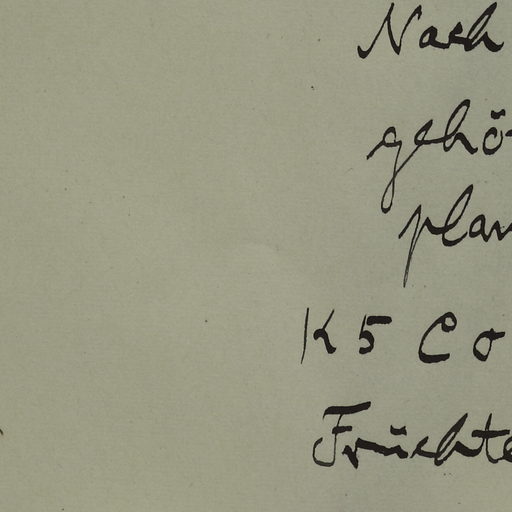 Nach
gehö
plan
K 5 Co
Früchte